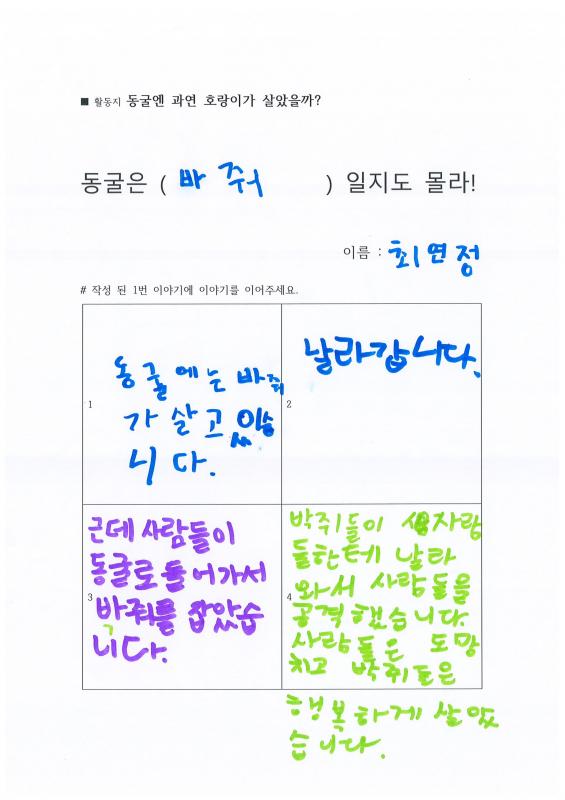 ■ 활동지 동굴엔 과연 호랑이가 살았을까?
동굴은 ( 바 줘 ) 일지도 몰라!
이름 : 최연정
# 작성 된 1번 이야기에 이야기를 이어주세요.
1
동굴에는 바줘
가 살고 있습
니다.
2
날라갑니다.
3
근데 사람들이
동굴로 들어가서
바줘를 잡았습
니다.
4
박쥐들이 사람
들한테 날라
와서 사람들을
공격했습니다.
사람들은 도망
치고 박쥐들은
행복하게 살았
습니다.